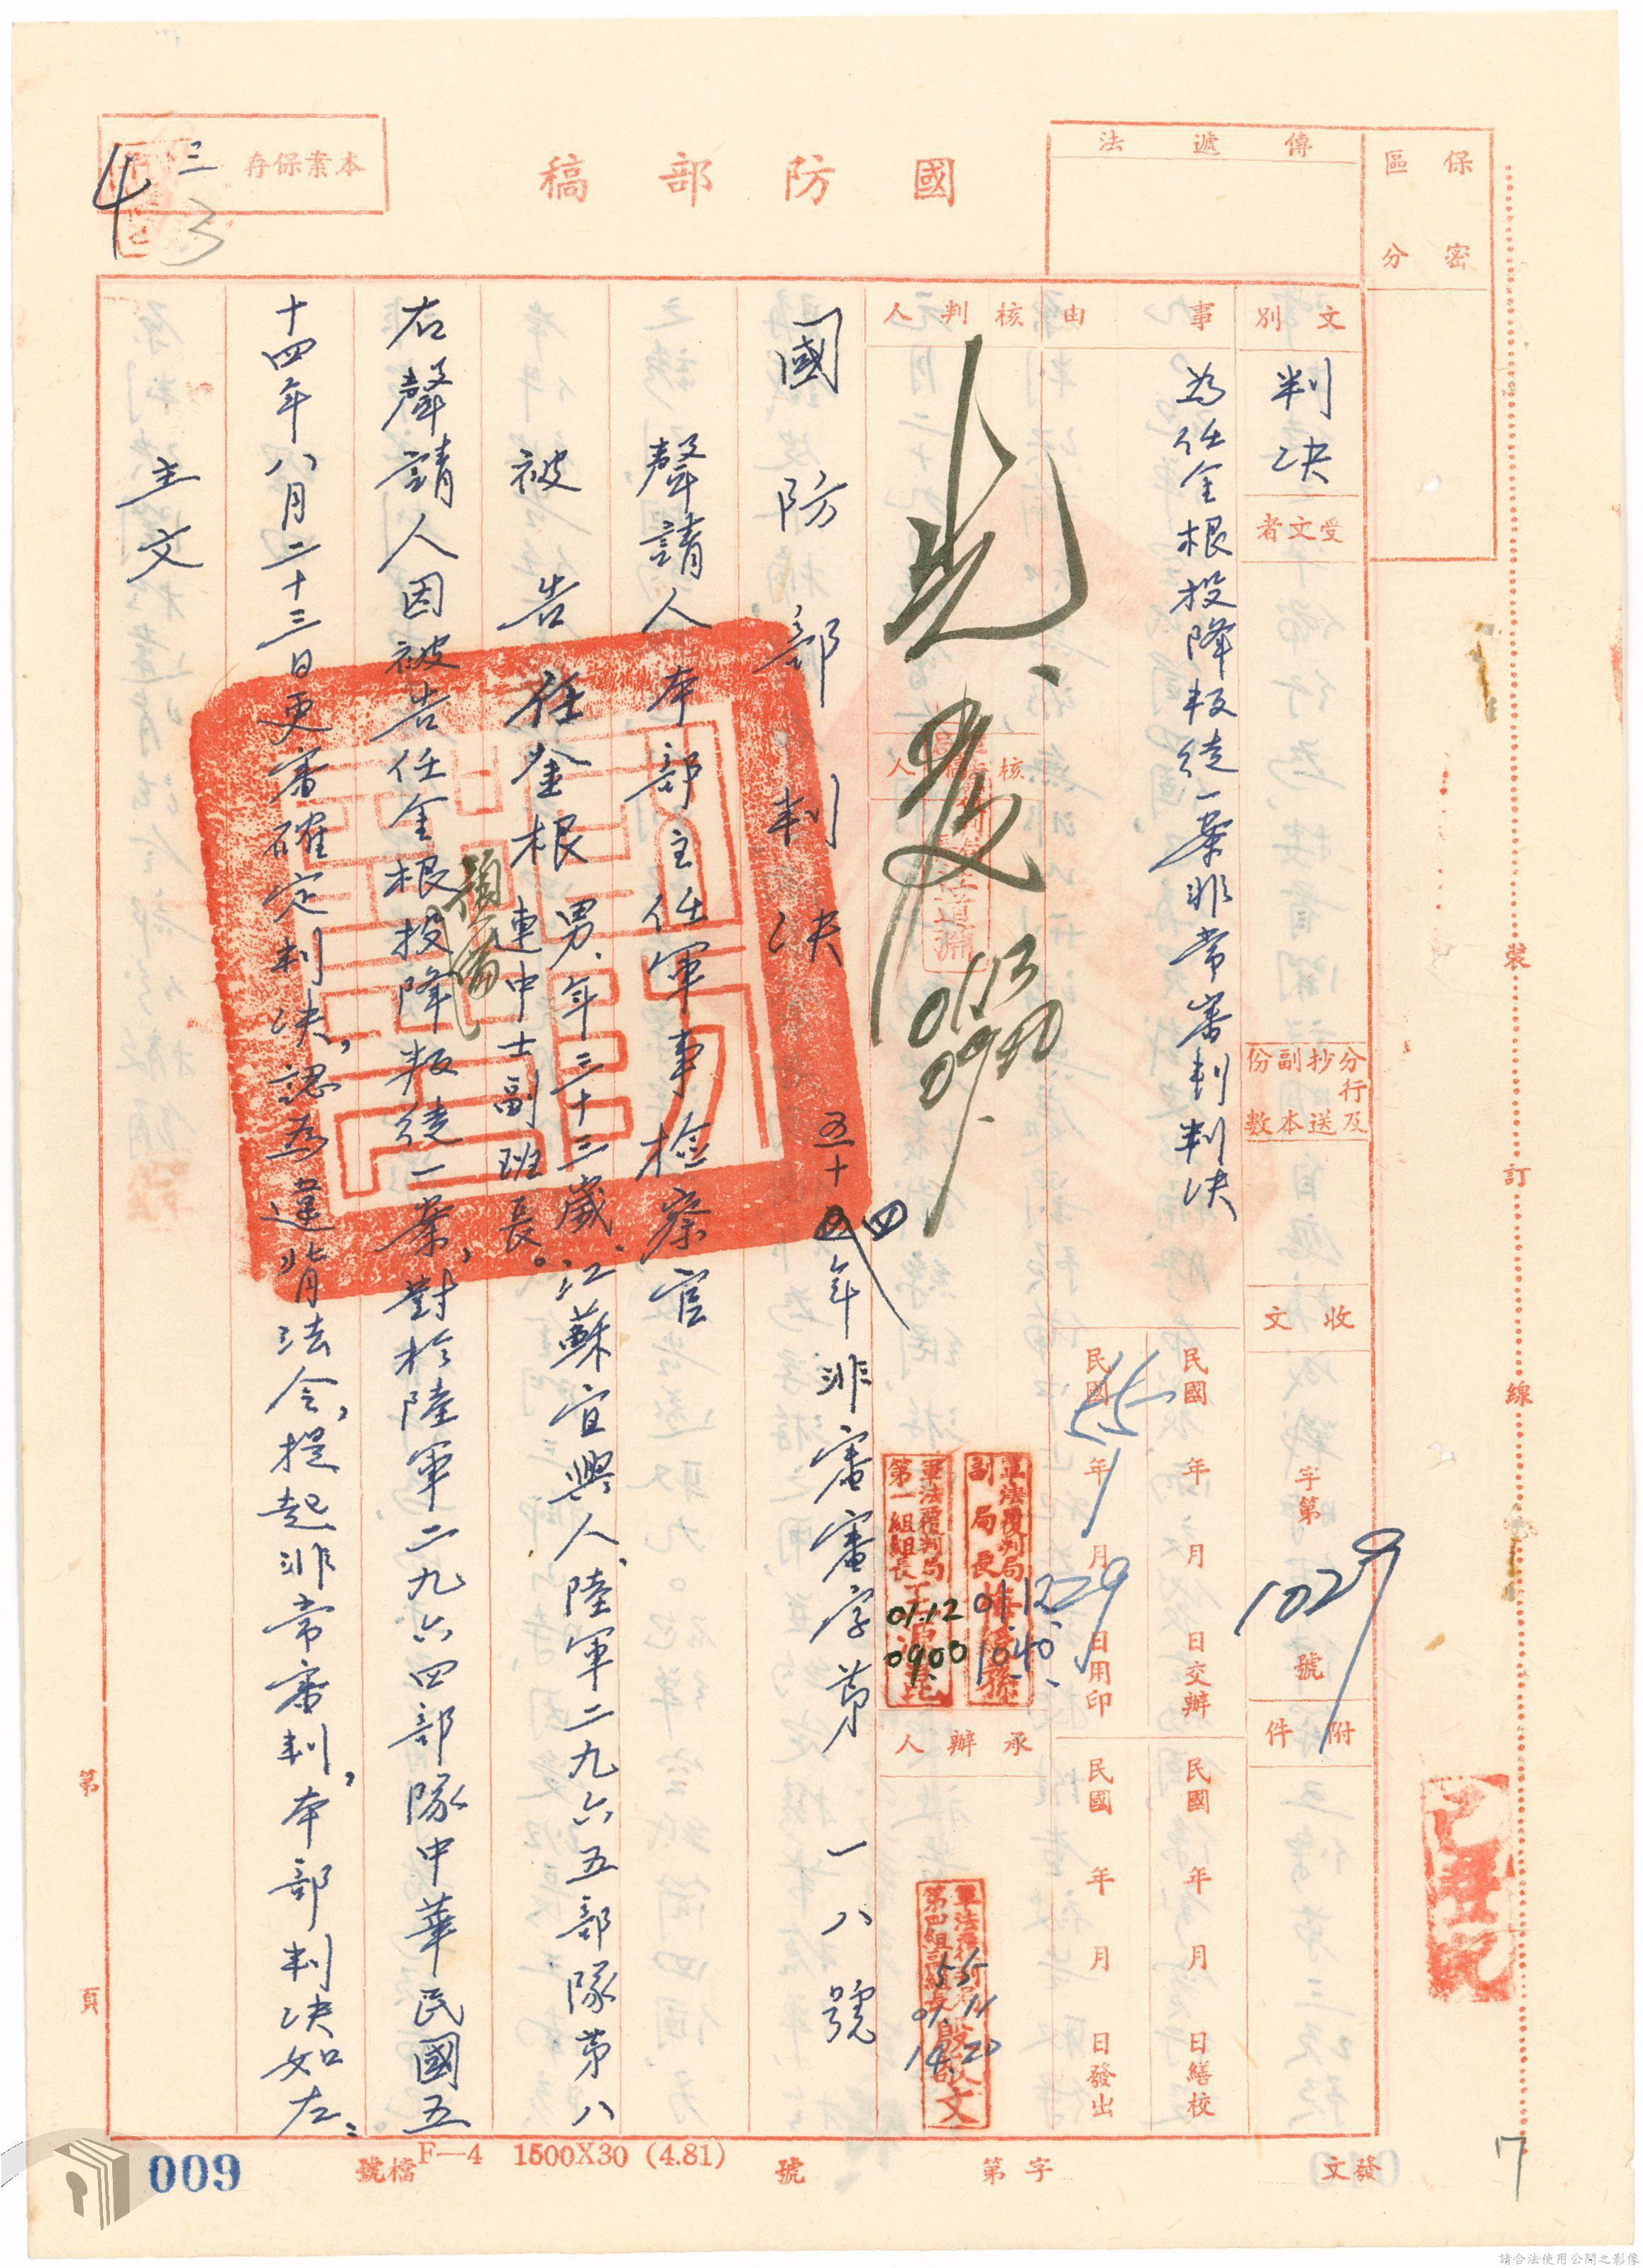 保密
區分
傳遞法
國防部稿
本案保存
三
3
4
文別
判決
受文者
分行及抄送副本份數
收文
字第
1029
號
附件
事由
為任金根投降叛徒一案非常審判判決
民國 年 月 日交辦
民國 年 月 日繕校
民國55年1月29日用印
民國 年 月 日發出
核判人
01/13
0940
核稿人
軍法覆判局
副局長
01.12
1040
軍法覆判局
第一組組長
01.12
0900
承辦人
55
01.11
14.20
國防部判決
五十四年非審審字第一八號
聲請人本部主任軍事檢察官
被告任金根男、年三十三歲、江蘇宜興人、陸軍二九六五部隊第八
連中士副班長。
右聲請人因被告任金根投降叛徒一案，對於陸軍二九六四部隊中華民國五
十四年八月二十三日更審確定判決，認為違背法令，提起非常審判，本部判決如左：
主文
裝
訂
線
已登記
第
頁
發文
字第
號
檔號
F—4 1500X30 (4.81)
009
17
請合法使用公開之影像